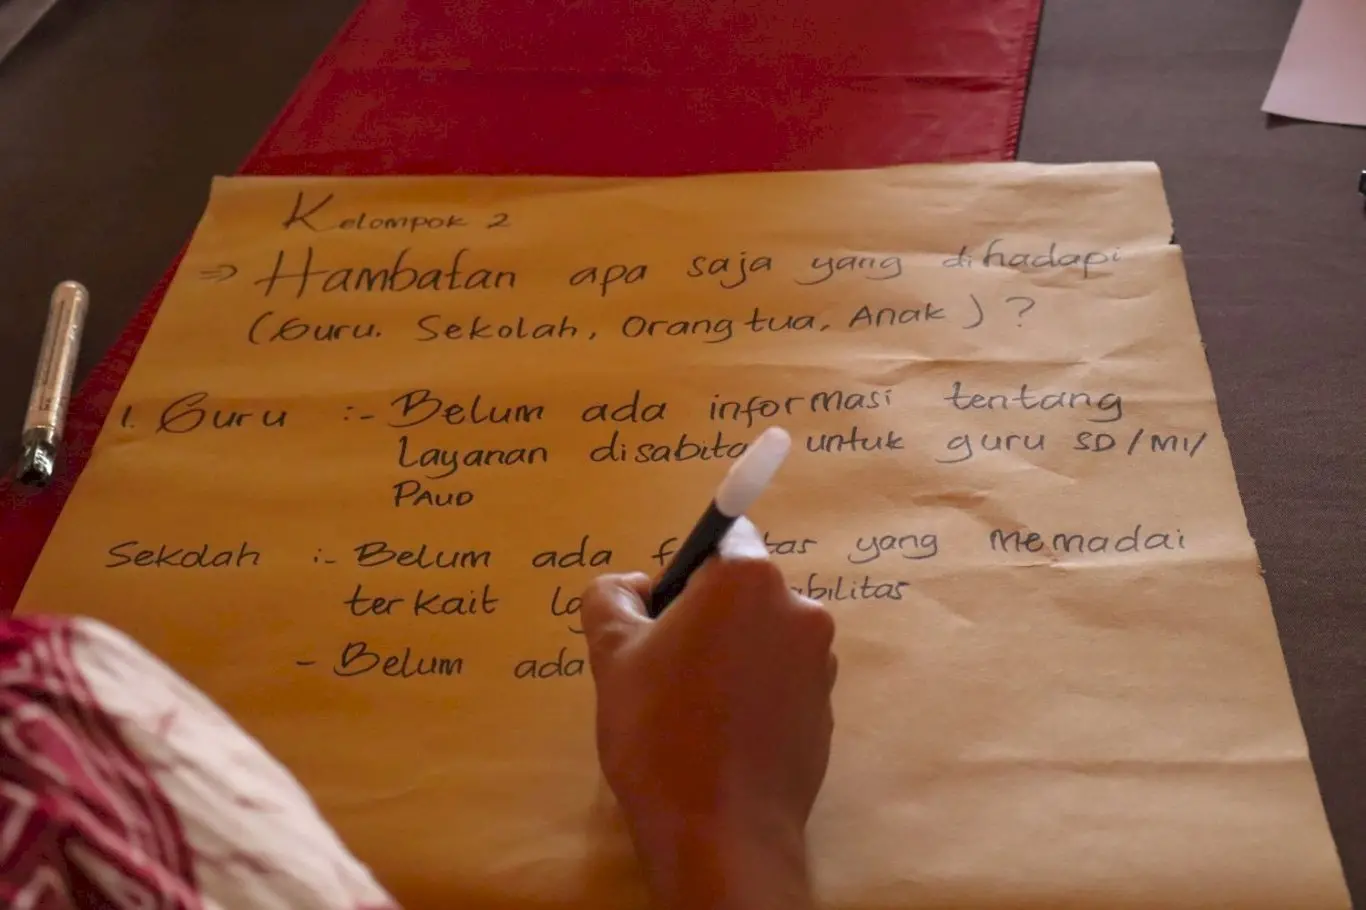 Kelompok 2
⇒ Hambatan apa saja yang dihadapi
(Guru. Sekolah, Orang tua, Anak) ?
1. Guru :- Belum ada informasi tentang
Layanan disabita untuk guru SD/MI/
PAUD
Sekolah :- Belum ada yang memadai
terkait
- Belum ada